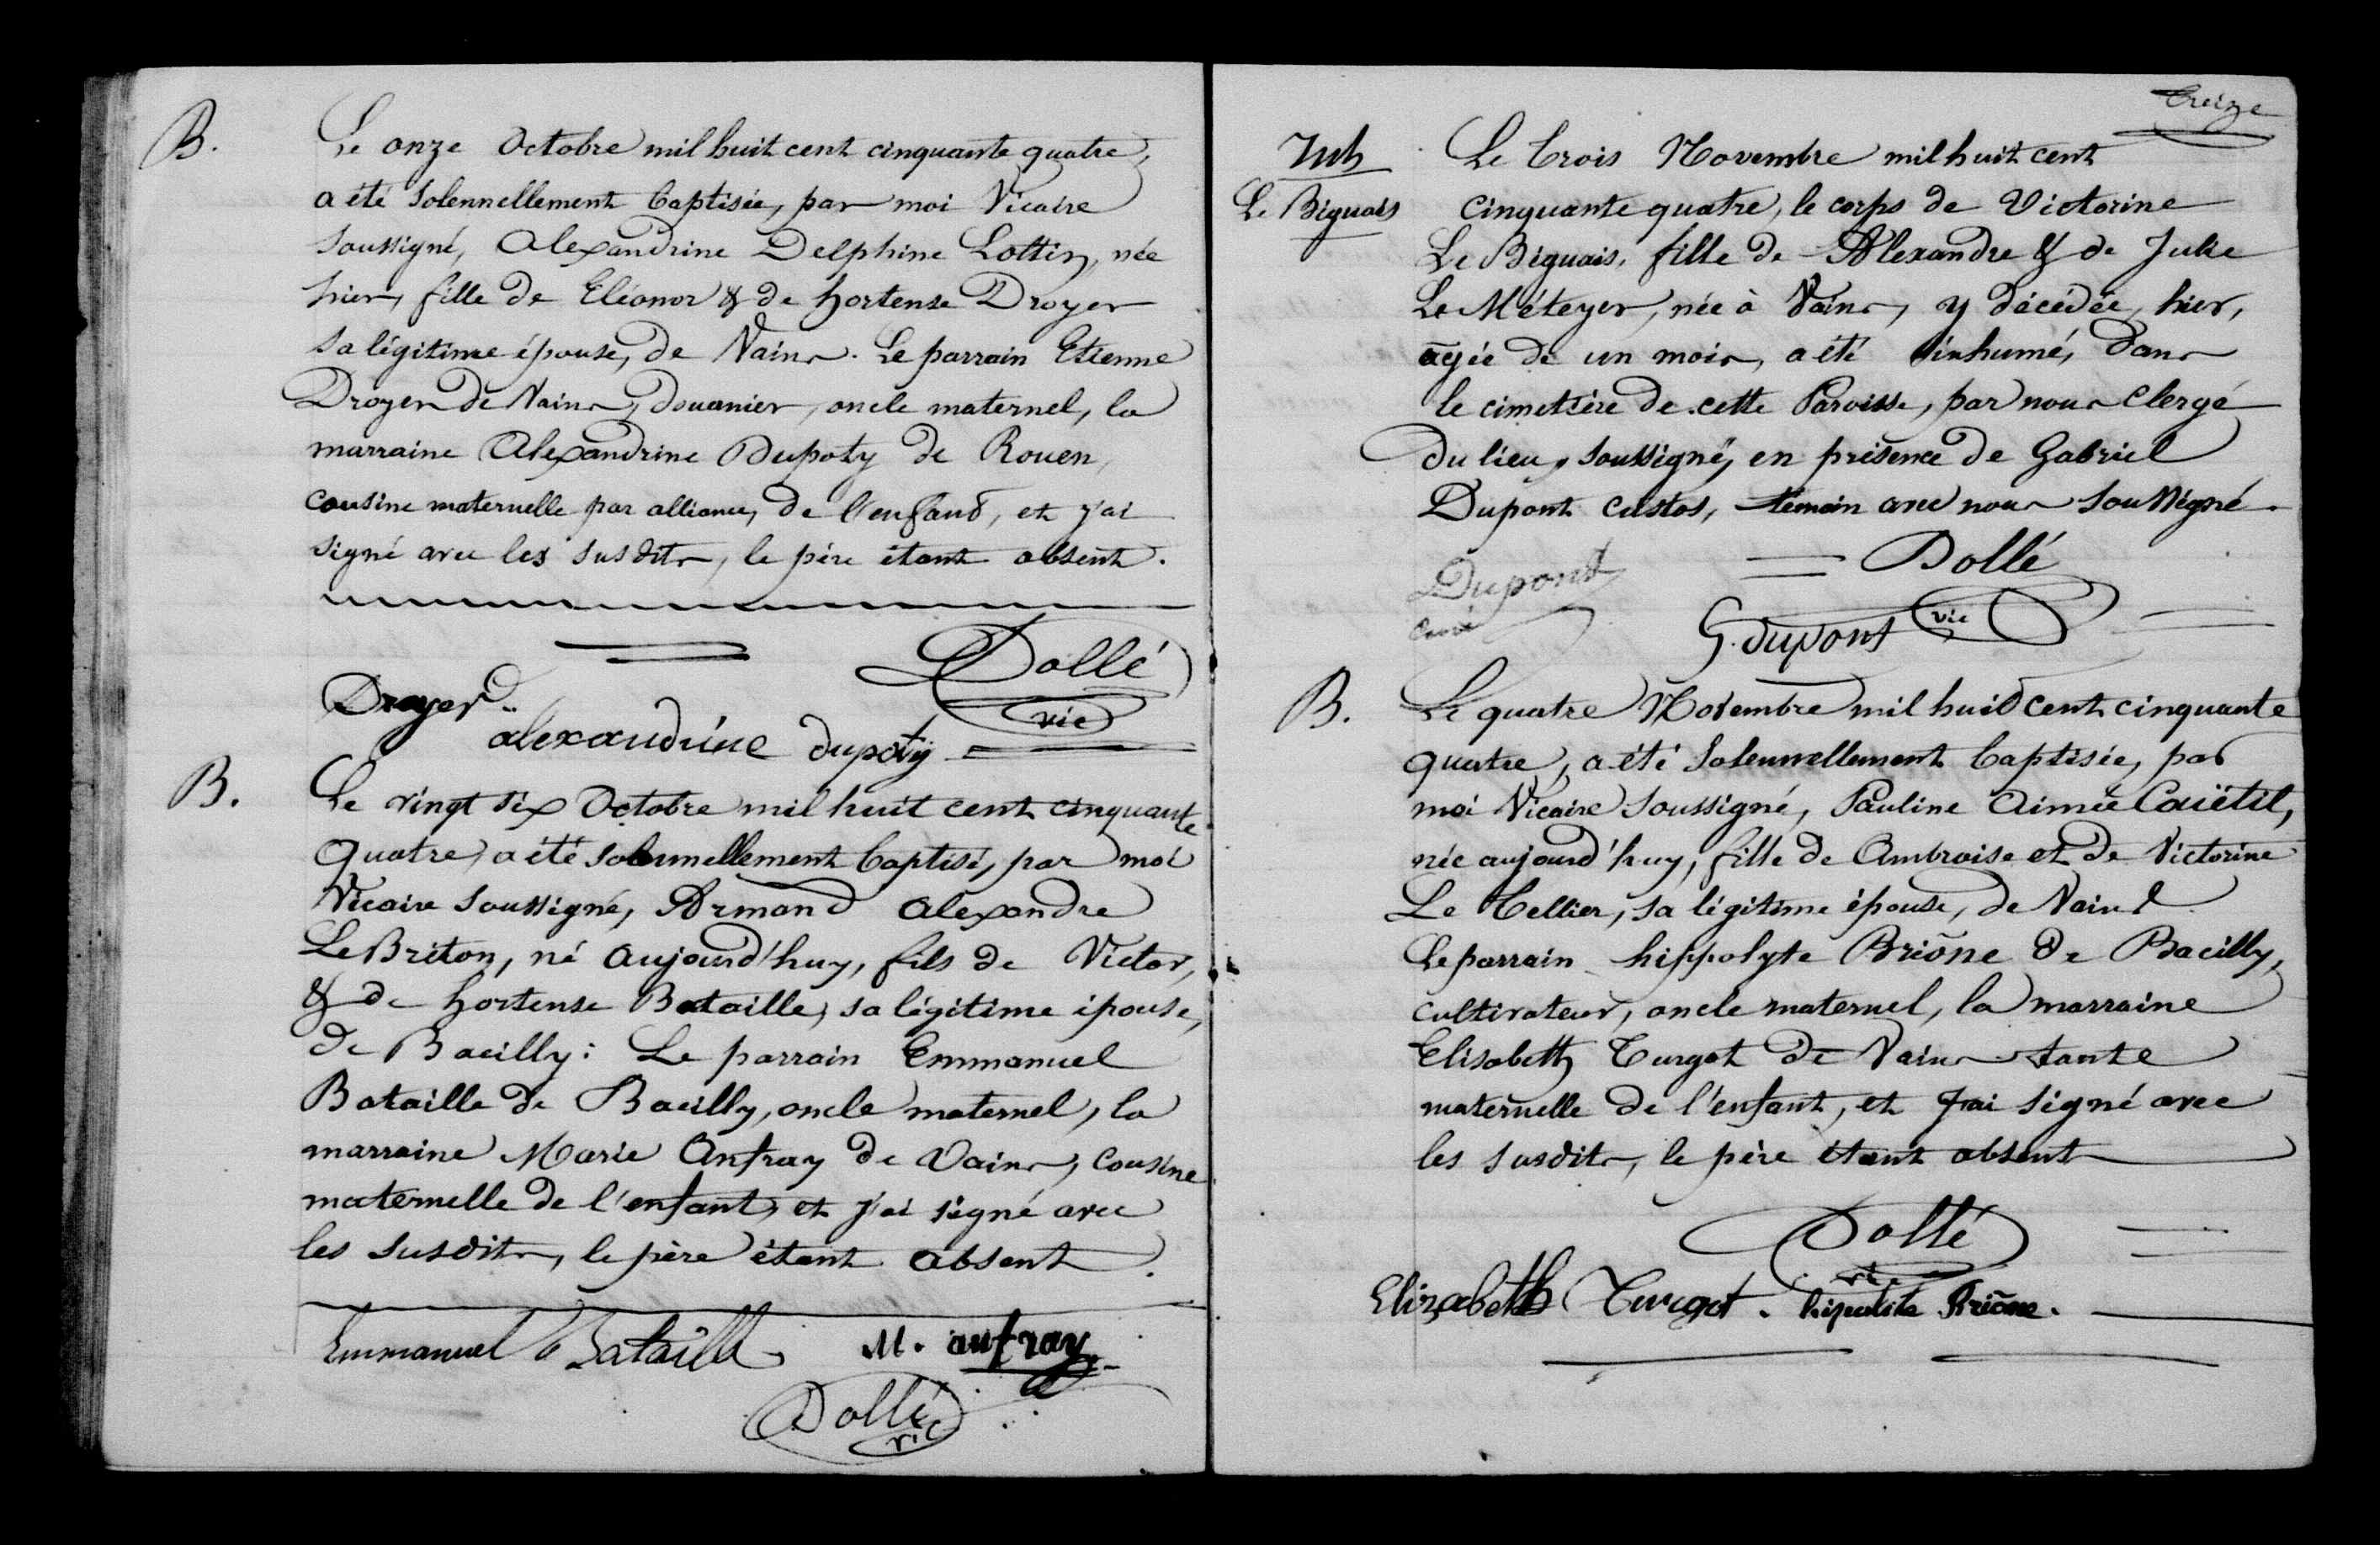 B.
Le onze Octobre mil huit cent cinquante quatre,
a été Solennellement Baptisée, par moi Vicaire
Soussigné, Alexandrine Delphine Lottin, née
hier, fille de Eléonor & de hortense Droyer
Sa légitime épouse, de Vains. Le parrain Etienne
Droyer de Vains, douanier, oncle maternel, la
marraine Alexandrine Dupoty de Rouen,
cousine maternelle par alliance, de l'enfant, et j'ai
signé avec les susdits, le père étant absent.
Dollé
vic
Droyer
alexandrine dupoty
B.
Le vingt six Octobre mil huit cent cinquante
quatre, a été solennellement baptisé, par moi
Vicaire Soussigné, Armand Alexandre
Le Breton, né aujourd'huy, fils de Victor,
& de hortense Bataille, sa légitime épouse,
de Bacilly: Le parrain Emmanuel
Bataille de Bacilly, oncle maternel, la
marraine Marie Anfray de Vains, cousine
maternelle de l'enfant, et j'ai signé avec
les susdits, le père étant absent.
Emmanuel Bataille M. anfray
Dollé
vic
treize
Inh
Le Biguais
Le trois Novembre mil huit cent
cinquante quatre, le corps de Victorine
Le Biguais, fille de Alexandre & de Julie
Le Méteyer, née à Vains, y décédée, hier,
agée de un mois, a été inhumé, dans
le cimetière de cette Paroisse, par nous Clergé
du lieu, soussigné, en présence de Gabriel
Dupont custos, témoin avec nous soussigné.
Dollé
vic
Dupont
Curé
G. dupont
B.
Le quatre Novembre mil huit cent cinquante
quatre, a été Solennellement baptisée, par
moi Vicaire Soussigné, Pauline Aimée Caiëtil,
née aujourd'huy, fille de Ambroise et de Victorine
Le Tellier, sa légitime épouse, de Vains
Le parrain hippolyte Briône de Bacilly,
cultivateur, oncle maternel, la marraine
Elisabeth Turgot de Vains tante
maternelle de l'enfant, et j'ai signé avec
les susdits, le père étant absent
Dollé
vic
Elizabeth Turgot. hipolite Briône.